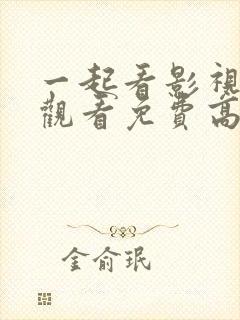 一起看影視
觀看免費高
金俞珉